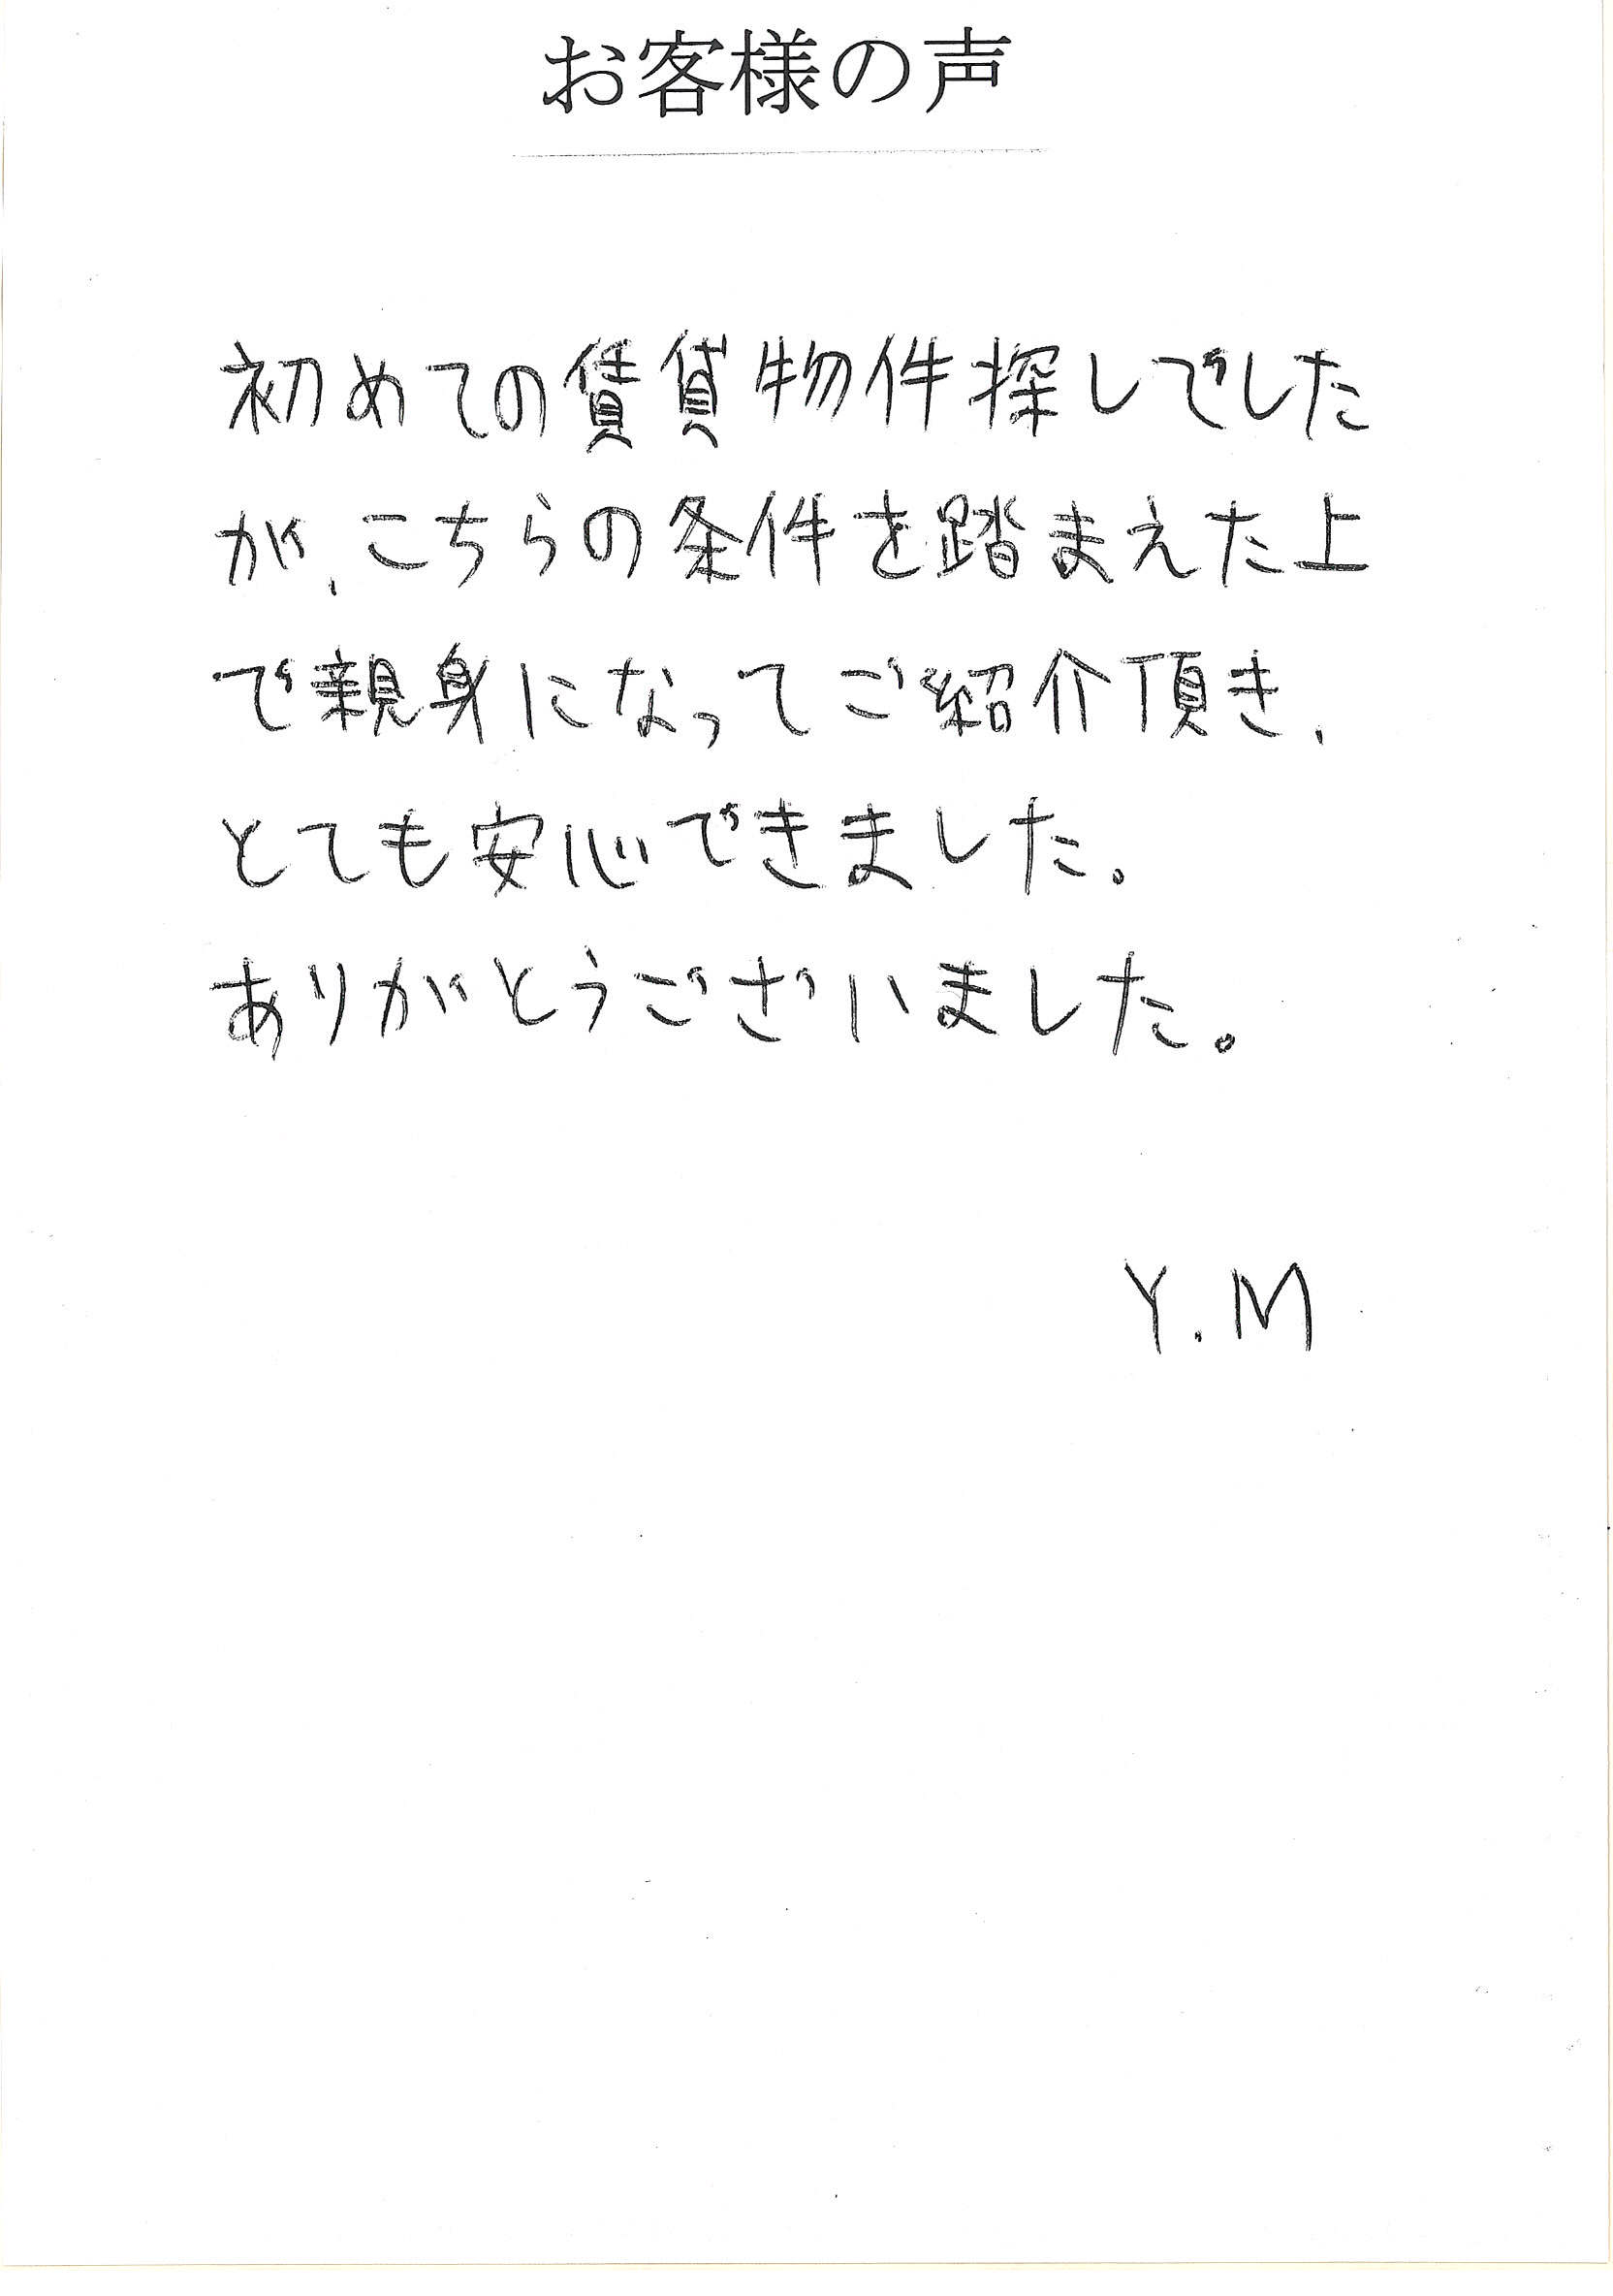 お客様の声
初めての賃貸物件探しでした
が、こちらの条件を踏まえた上
で親身になってご紹介頂き、
とても安心できました。
ありがとうございました。
Y.M